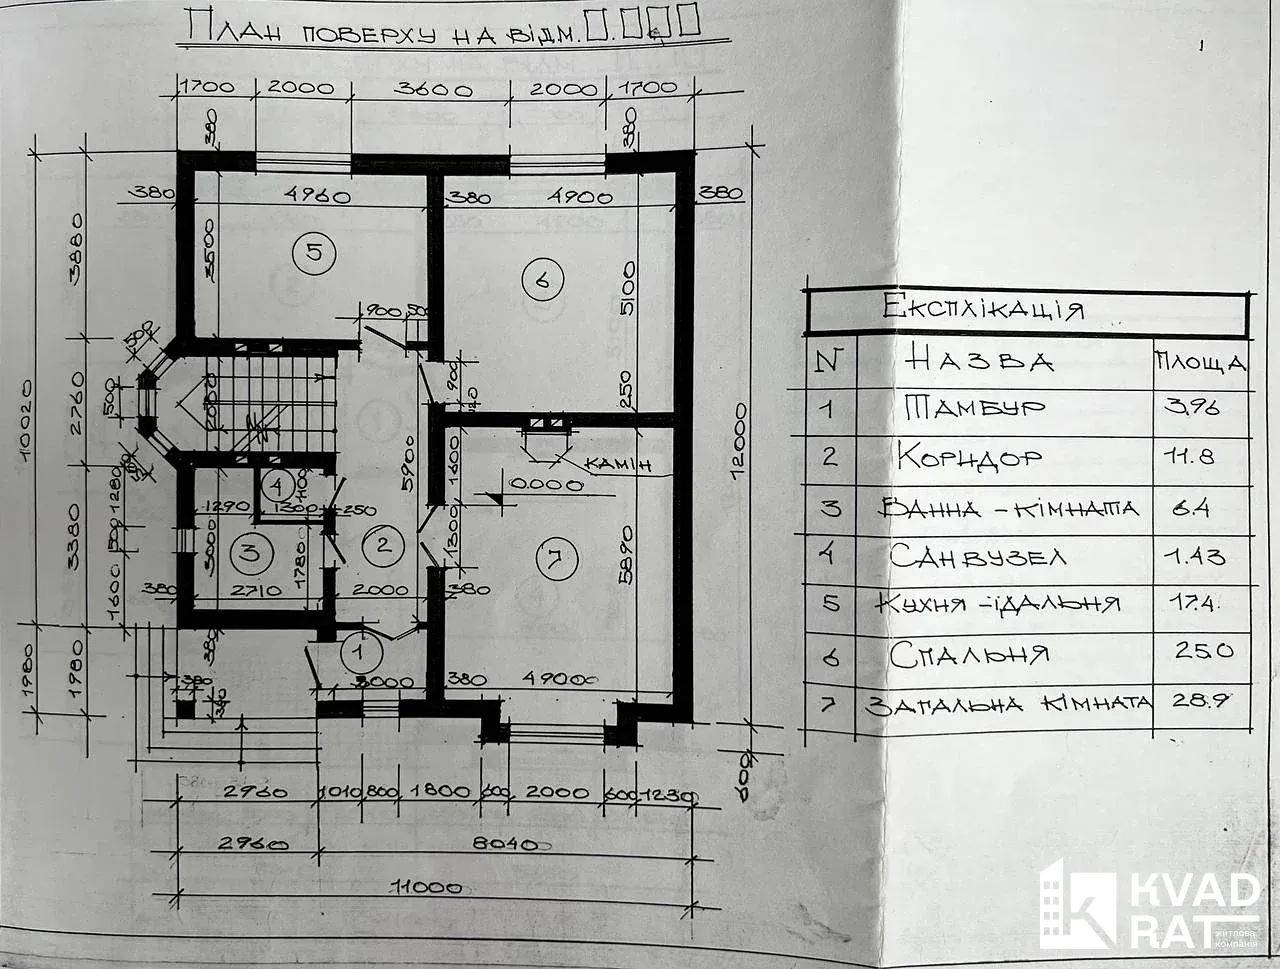 План поверху на відм. 0.000
1700 2000 3600 2000 1700
380 380
380 4960 380 4900 380
3880 3500 5 6 5100
900 500
500
10020 2760 500 2000 900 120 250 12000
1 5900 1600 камін
0.000
4 1100
1280 1290 1300 250
3380 500 3000 3 1780 2 1300 7 5890
1600 380 2710 2000 380
1980 1980 380 1
380 380 2000 380 4900
600
2960 1010 800 1800 600 2000 600 1230
2960 8040
11000
Експлікація
N Назва площа
1 Тамбур 3.96
2 Коридор 11.8
3 Ванна - кімната 6.4
4 Санвузел 1.43
5 Кухня - їдальня 17.4
6 Спальня 25.0
7 Загальна кімната 28.9
KVAD
RAT
житлова
компанія